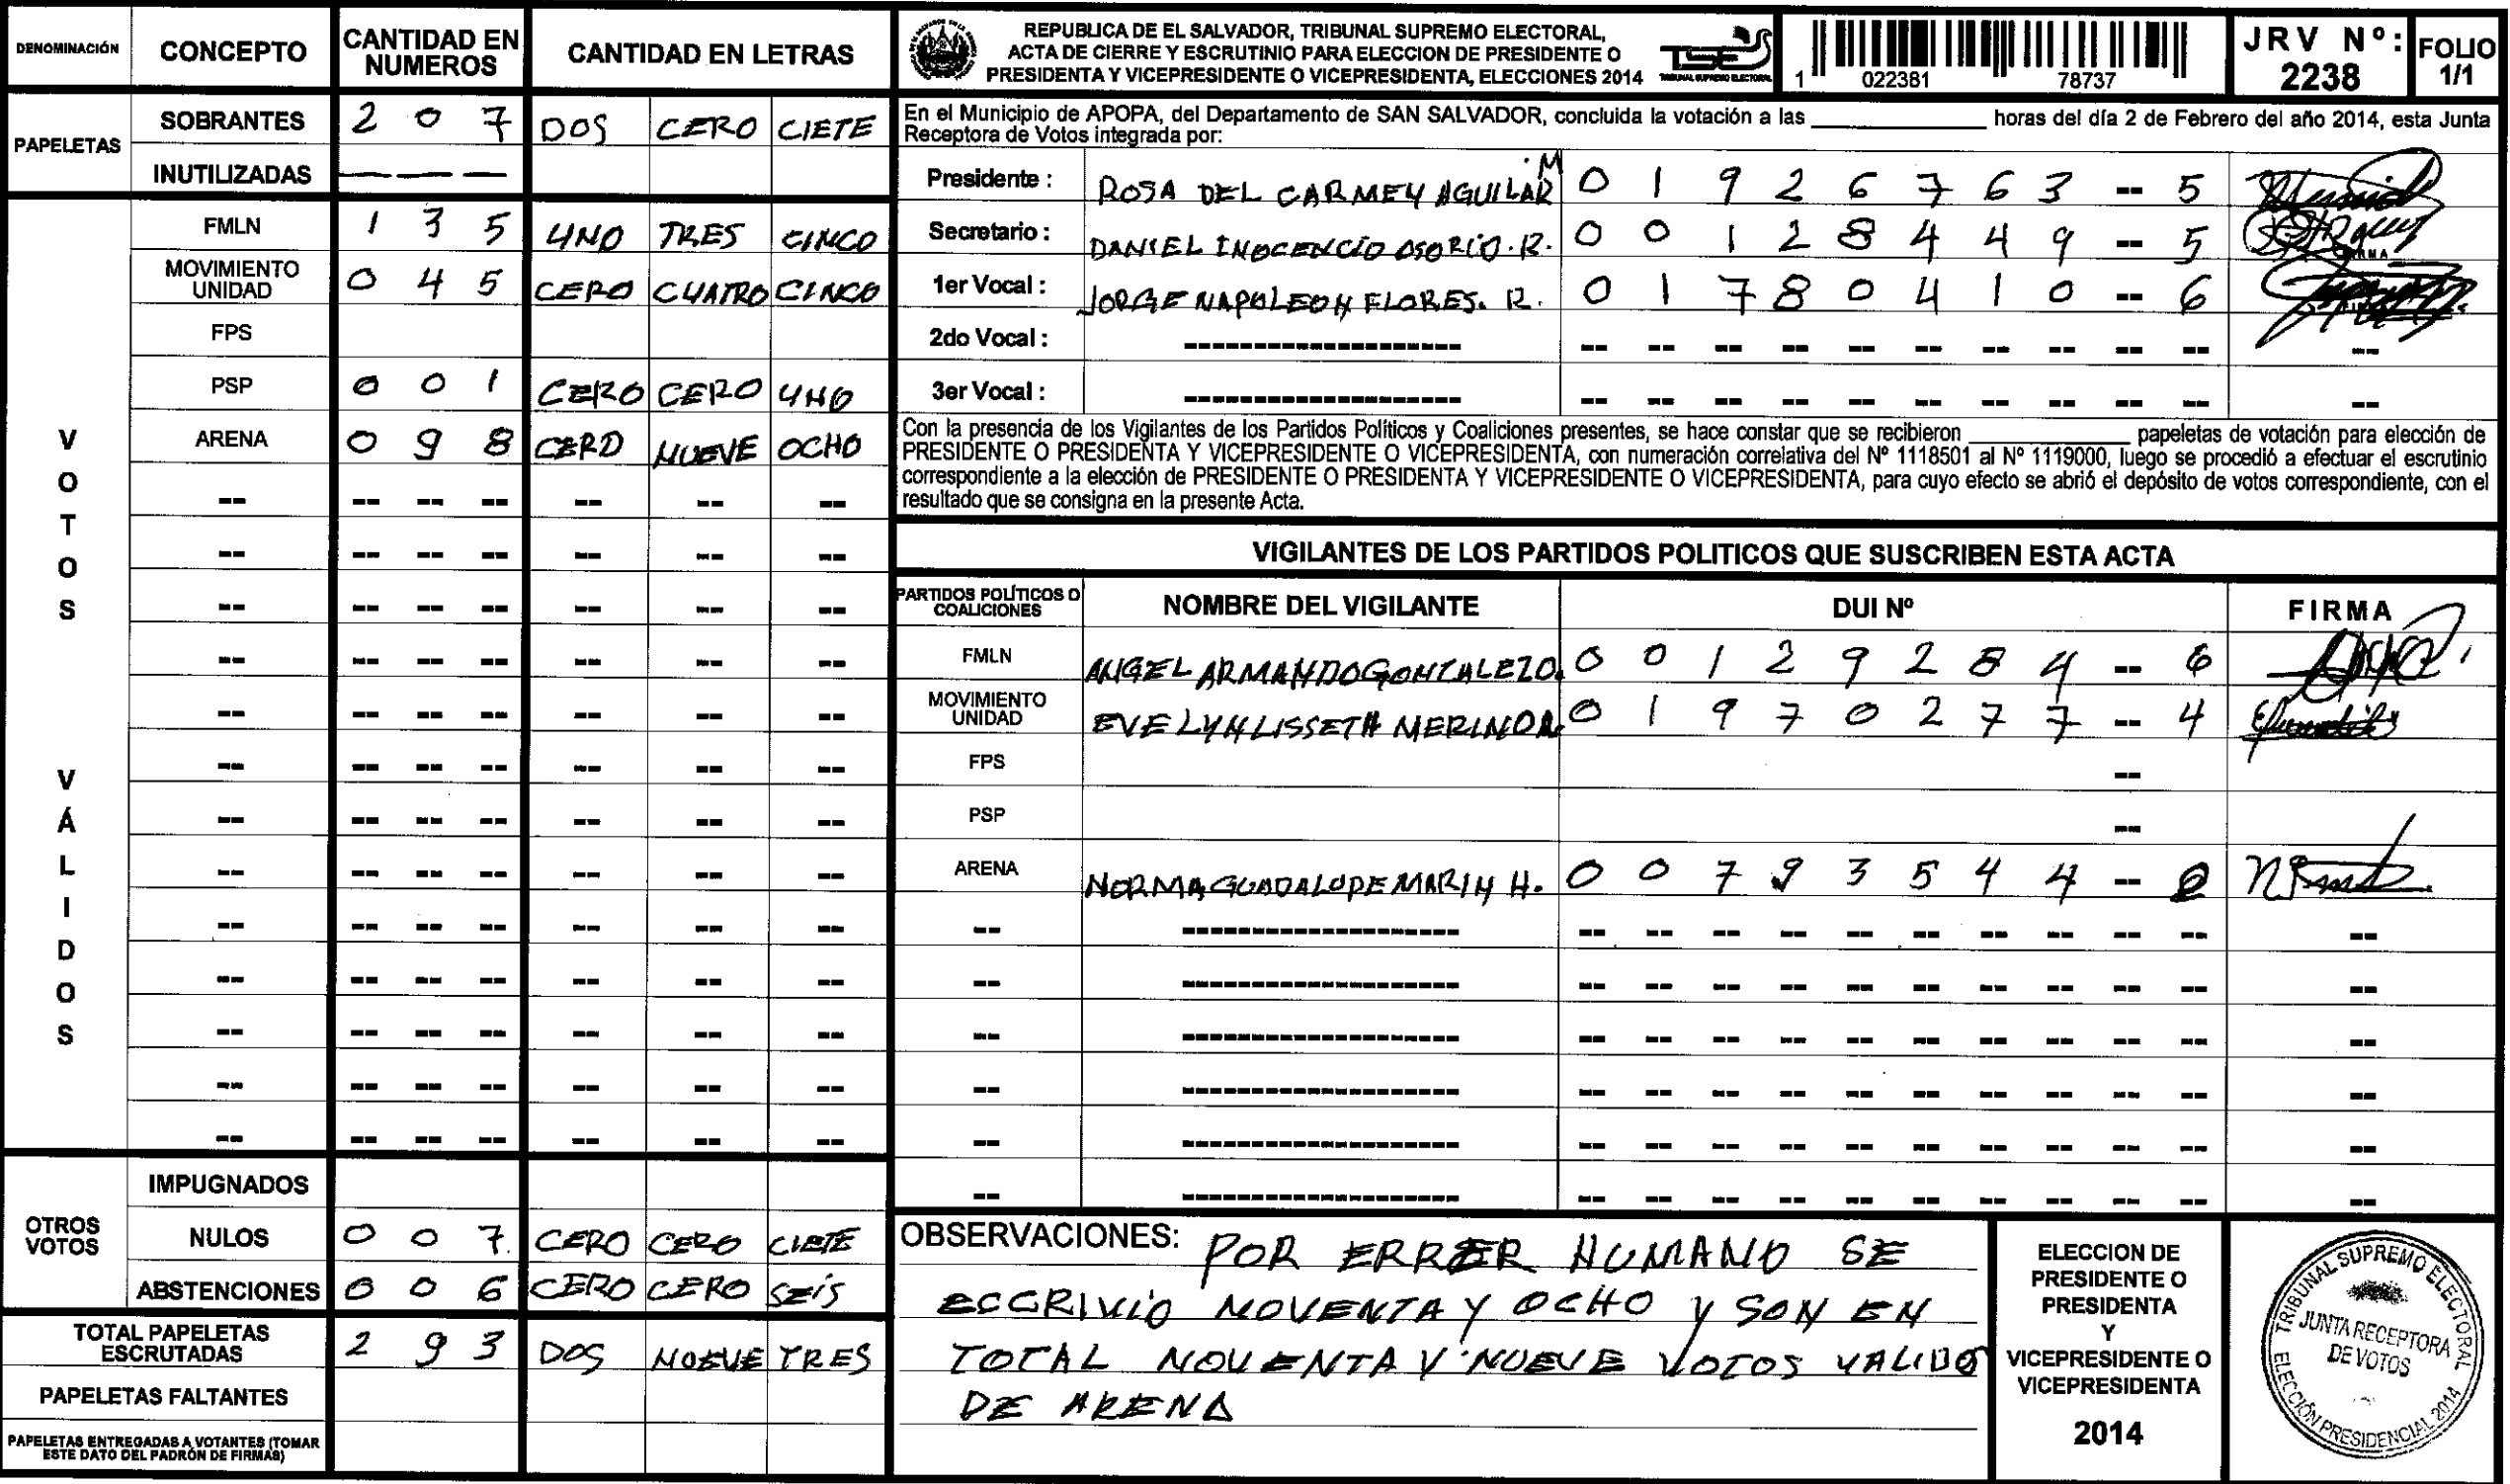 DENOMINACIÓN CONCEPTO CANTIDAD EN NUMEROS CANTIDAD EN LETRAS
PAPELETAS
SOBRANTES 2 0 7 DOS CERO CIETE
INUTILIZADAS — — —
VOTOS VÁLIDOS
FMLN 1 3 5 UNO TRES CINCO
MOVIMIENTO UNIDAD 0 4 5 CERO CUATRO CINCO
FPS
PSP 0 0 1 CERO CERO UNO
ARENA 0 9 8 CERO NUEVE OCHO
OTROS VOTOS
IMPUGNADOS
NULOS 0 0 7. CERO CERO CIETE
ABSTENCIONES 0 0 6 CERO CERO SEIS
TOTAL PAPELETAS ESCRUTADAS 2 9 3 DOS NUEVE TRES
PAPELETAS FALTANTES
PAPELETAS ENTREGADAS A VOTANTES (TOMAR
ESTE DATO DEL PADRÓN DE FIRMAS)
REPUBLICA DE EL SALVADOR, TRIBUNAL SUPREMO ELECTORAL,
ACTA DE CIERRE Y ESCRUTINIO PARA ELECCION DE PRESIDENTE O
PRESIDENTA Y VICEPRESIDENTE O VICEPRESIDENTA, ELECCIONES 2014
TSE
TRIBUNAL SUPREMO ELECTORAL
1 022381 78737
JRV Nº: 2238
FOLIO 1/1
En el Municipio de APOPA, del Departamento de SAN SALVADOR, concluida la votación a las ____________ horas del día 2 de Febrero del año 2014, esta Junta
Receptora de Votos integrada por:
Presidente : ROSA DEL CARMEN AGUILAR M 0 1 9 2 6 7 6 3 -- 5
Secretario : DANIEL INOCENCIO OSORIO. R. 0 0 1 2 8 4 4 9 -- 5
1er Vocal : JORGE NAPOLEON FLORES. R. 0 1 7 8 0 4 1 0 -- 6
2do Vocal :
3er Vocal :
Con la presencia de los Vigilantes de los Partidos Políticos y Coaliciones presentes, se hace constar que se recibieron ____________ papeletas de votación para elección de
PRESIDENTE O PRESIDENTA Y VICEPRESIDENTE O VICEPRESIDENTA, con numeración correlativa del Nº 1118501 al Nº 1119000, luego se procedió a efectuar el escrutinio
correspondiente a la elección de PRESIDENTE O PRESIDENTA Y VICEPRESIDENTE O VICEPRESIDENTA, para cuyo efecto se abrió el depósito de votos correspondiente, con el
resultado que se consigna en la presente Acta.
VIGILANTES DE LOS PARTIDOS POLITICOS QUE SUSCRIBEN ESTA ACTA
PARTIDOS POLÍTICOS O COALICIONES NOMBRE DEL VIGILANTE DUI Nº FIRMA
FMLN ANGEL ARMANDO GONZALEZ O. 0 0 1 2 9 2 8 4 -- 6
MOVIMIENTO UNIDAD EVELYN LISSETH MERINO 0 1 9 7 0 2 7 7 -- 4
FPS --
PSP --
ARENA NORMA GUADALUPE MARIN H. 0 0 7 9 3 5 4 4 -- 0
OBSERVACIONES: POR ERROR HUMANO SE
ECCRIVIO NOVENTA Y OCHO Y SON EN
TOTAL NOVENTA Y NUEVE VOTOS VALIDO
DE ARENA
ELECCION DE
PRESIDENTE O
PRESIDENTA
Y
VICEPRESIDENTE O
VICEPRESIDENTA
2014
TRIBUNAL SUPREMO ELECTORAL
JUNTA RECEPTORA
DE VOTOS
ELECCIÓN PRESIDENCIAL 2014